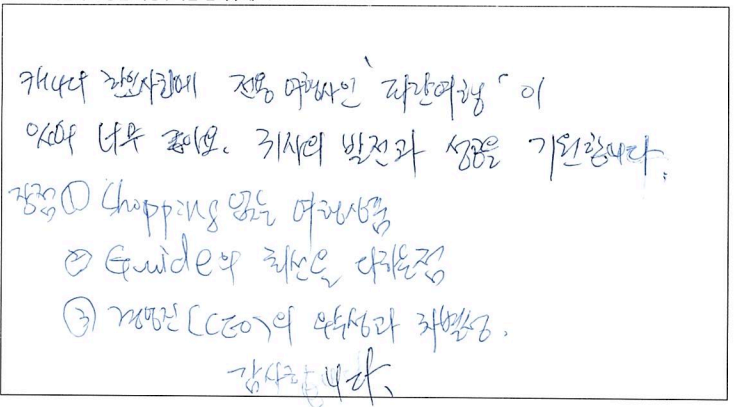 캐나다 한인사회에 전용 여행사인 '파란여행'이
있어 너무 좋아요. 귀사의 발전과 성공을 기원합니다.
장점 ① Shopping 없는 여행상품
② Guide의 최선을 다하는점
③ 경영진(CEO)의 우수성과 차별성.
감사합니다.